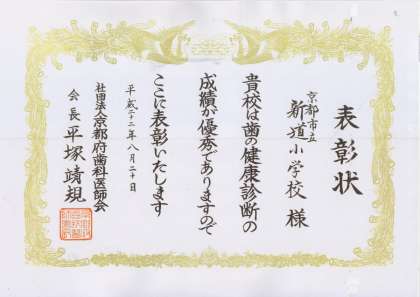 表彰状
京都市立
新道小学校 様
貴校は歯の健康診断の
成績が優秀でありますので
ここに表彰いたします
平成二十二年八月二十日
社団法人京都府歯科医師会
会長 平塚靖規